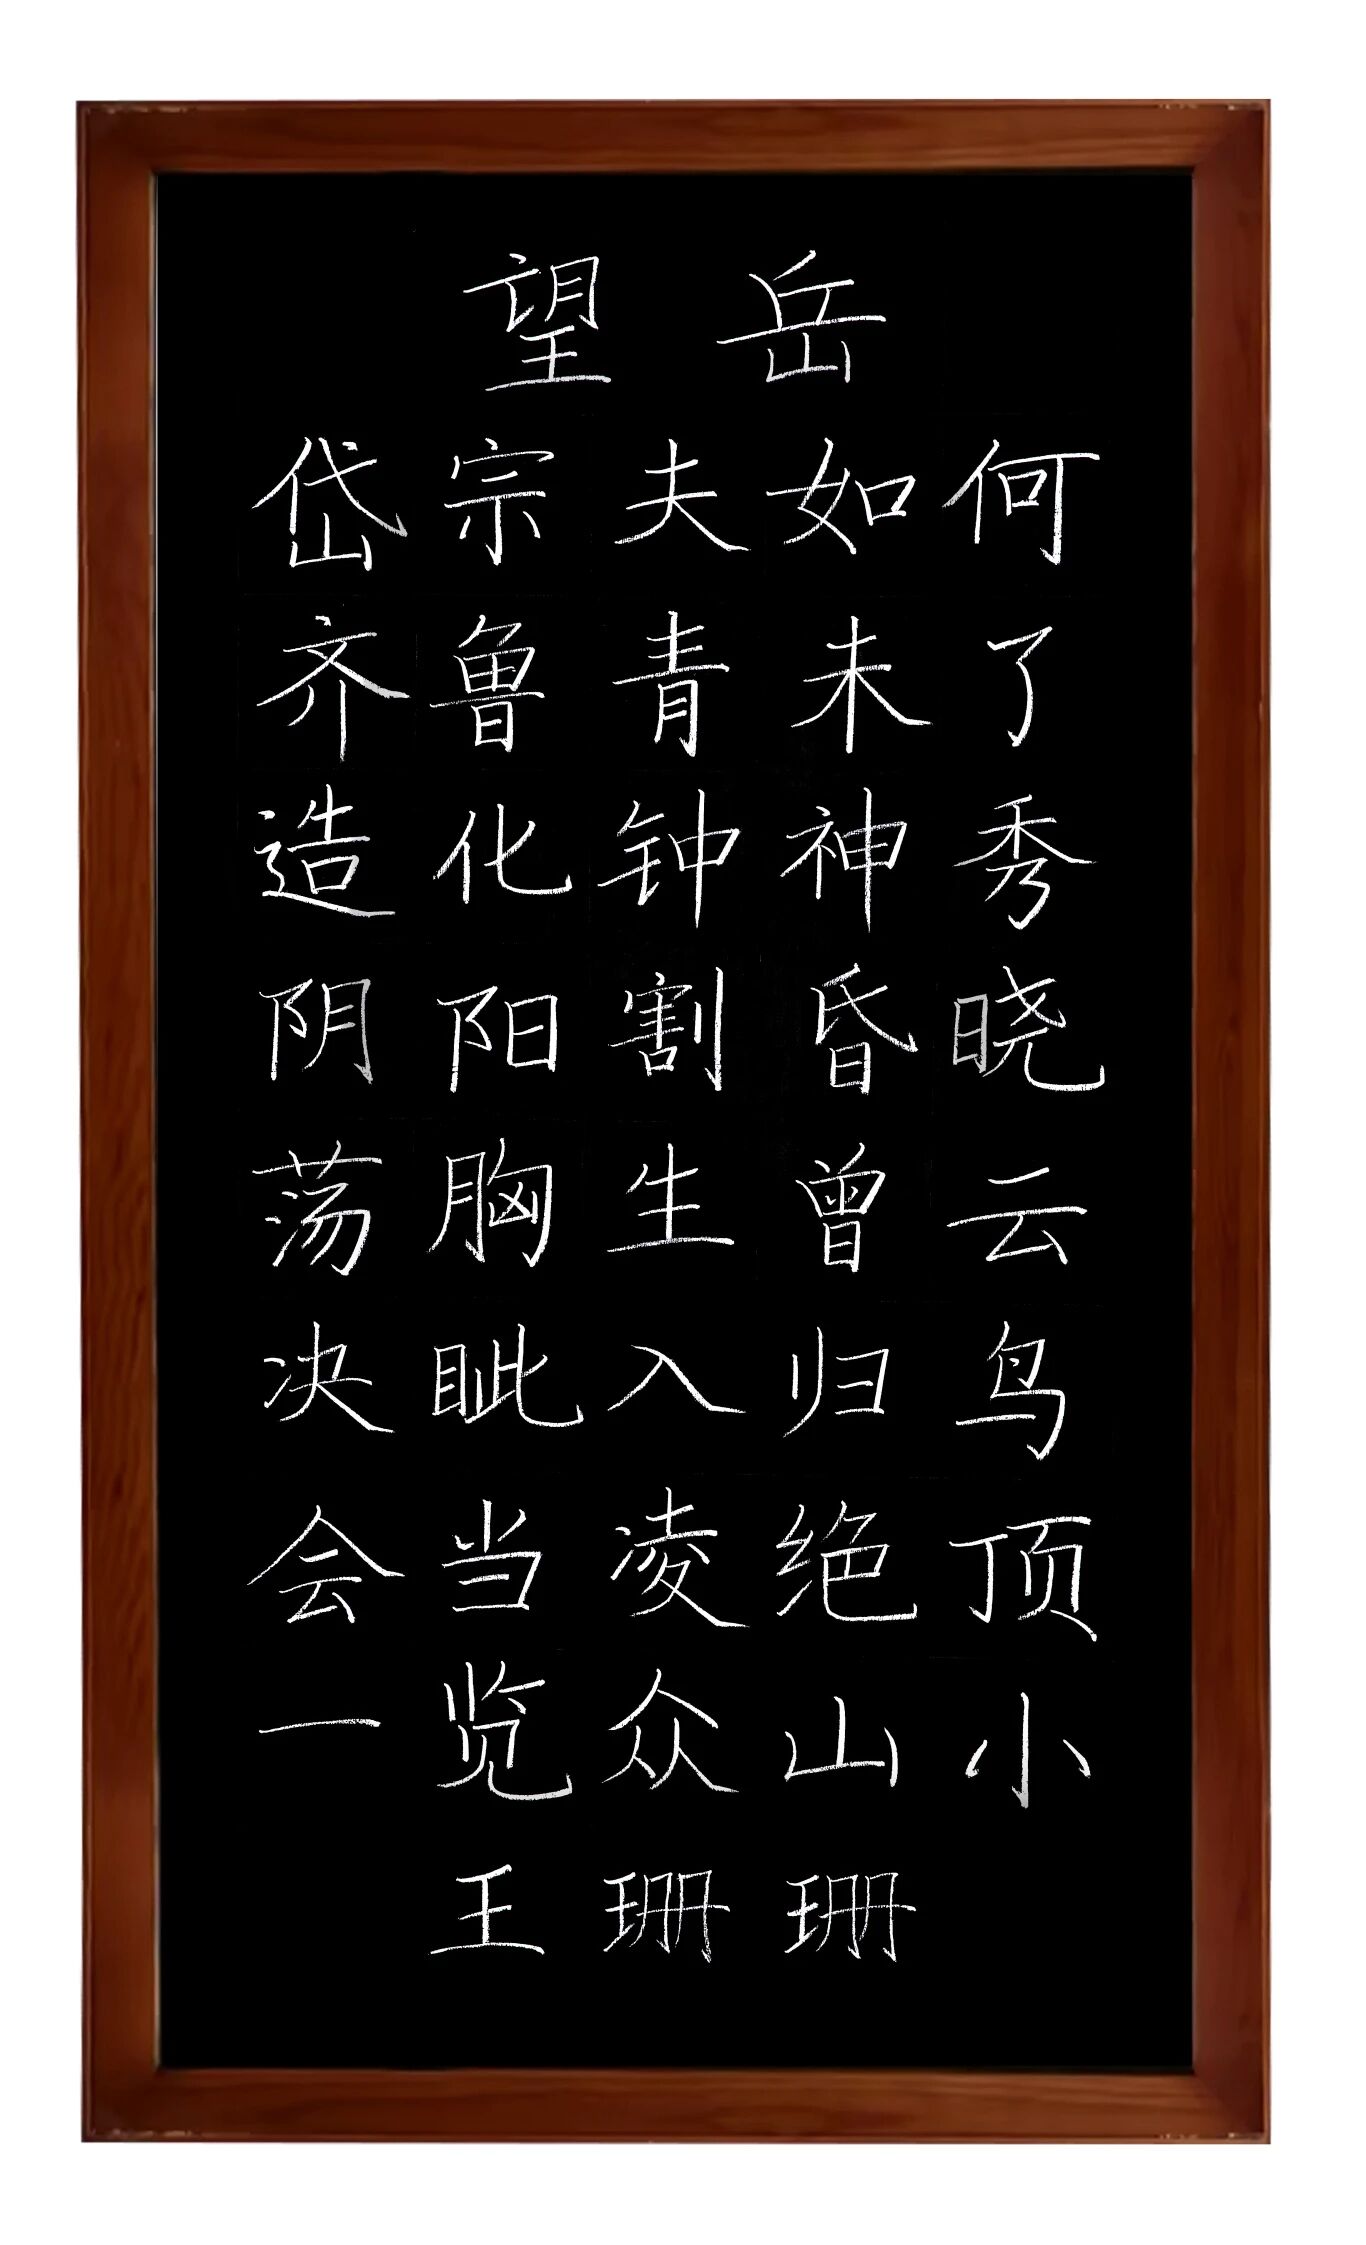 望岳
岱宗夫如何
齐鲁青未了
造化钟神秀
阴阳割昏晓
荡胸生曾云
决眦入归鸟
会当凌绝顶
一览众山小
王珊珊